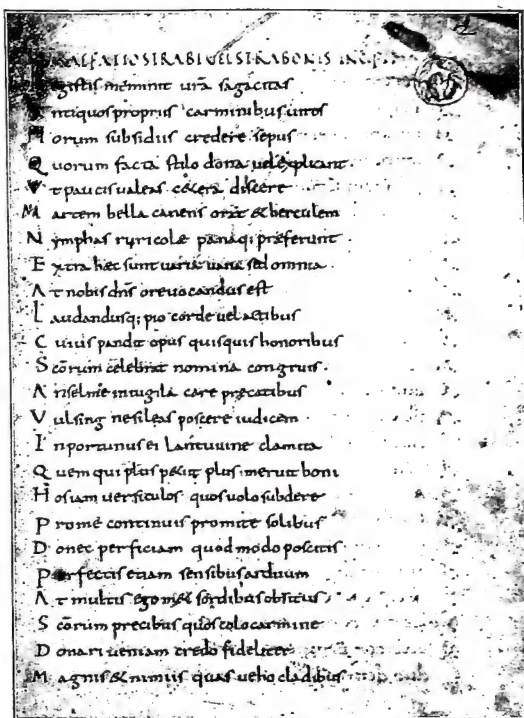 PRAEFATIO STRABI VEL STRABONIS INCIPIT
Legistis meminit urã sagacitas
Antiquos propriis carminibus uiros
Morum subsidiis credere sepius
Quorum facta stilo dona uel explicant
Vt paucis ualeas cetera discere
Martem bella canens orat & herculem
Nymphas ruricolę panaq; pręferunt
Extra hęc sunt uaria uana sed omnia
At nobis dñs ore uocandus est
Laudandusq; pio corde uel actibus
Cuius pandit opus quisquis honoribus
Scõrum celebrat nomina congruis.
Anselme inuigila care precatibus
Vulsing ne sileas poscere iudicem
Inportunus ei Lantuuine clamita
Quem qui plus petit plus meruit boni
Hos iam uersiculos quos uolo subdere
Prome continuis promite solibus
Donec perficiam quod modo poscitis
Perfectis etiam sensibus arduum
At multis ego męę sordibus obsitus
Scõrum precibus quos colo carmine
Donari ueniam credo fideliter
Magnis & nimiis quas ueho cladibus